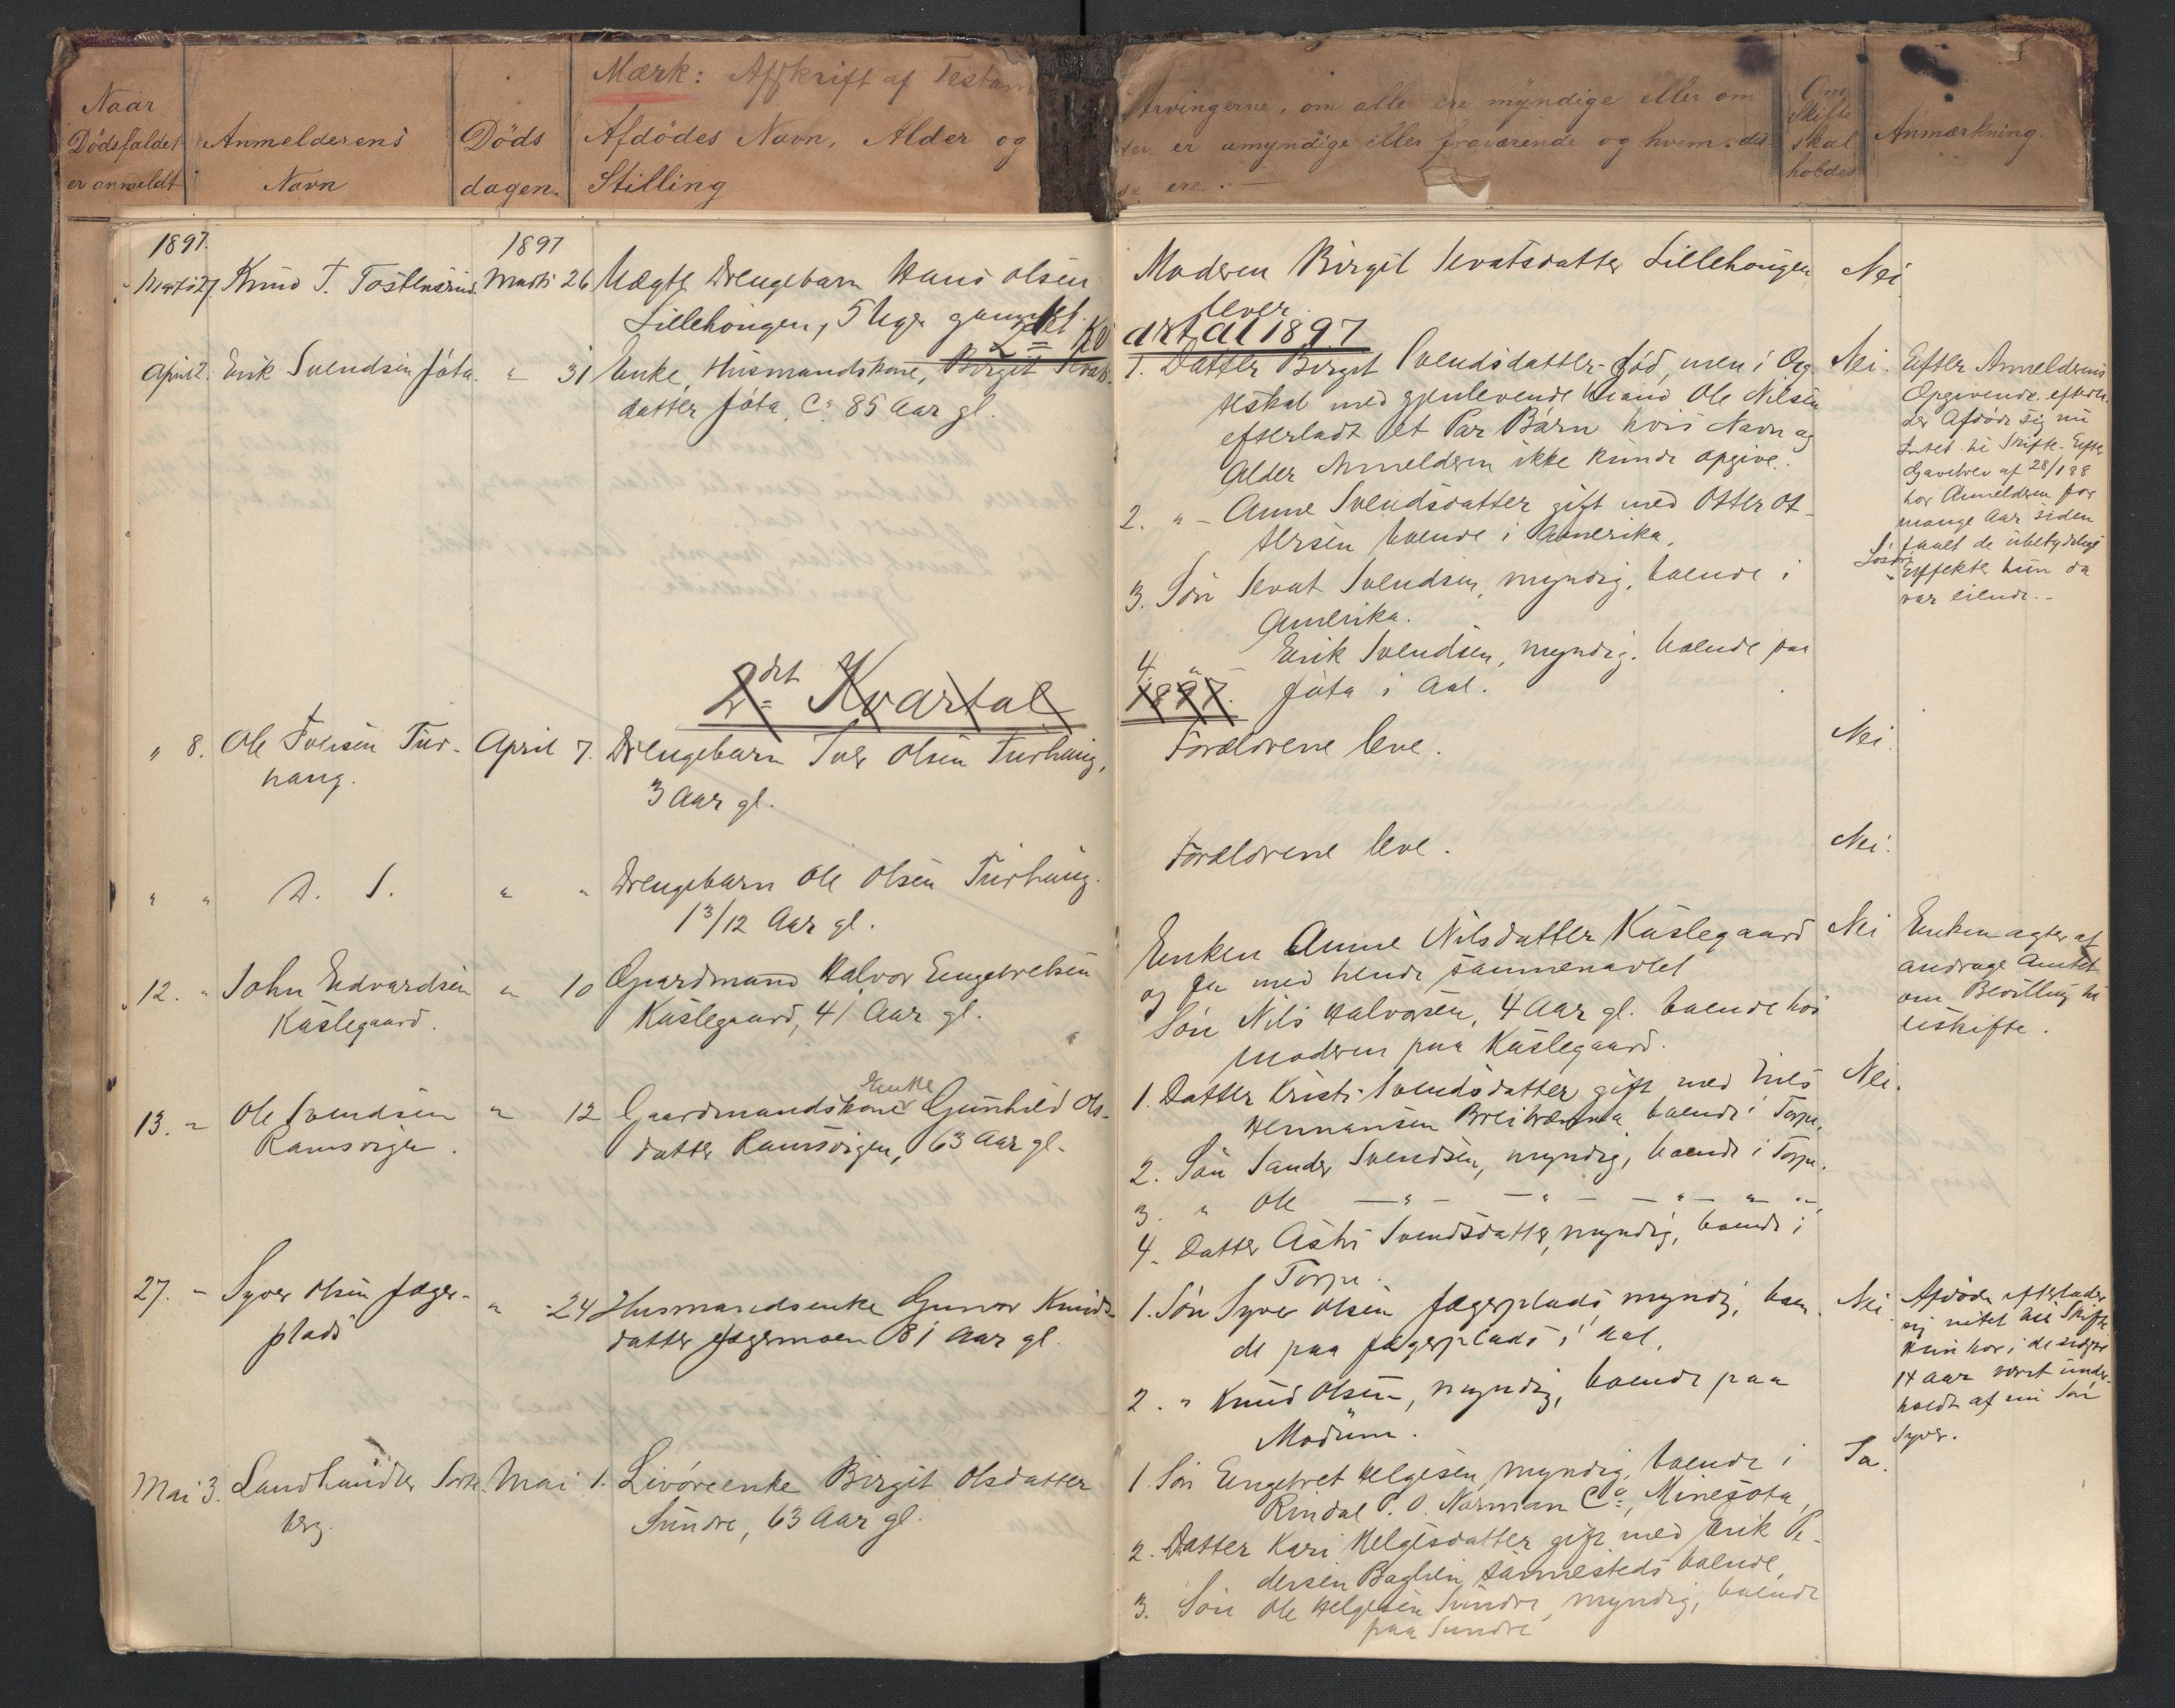 Mærk: Afskrift af Testam
Naar
Dödsfaldet
er anmeldt
Anmelderens
Navn
Döds
dagen.
Afdödes Navn, Alder og
Stilling
Arvingerne, om alle ere myndige eller om
der er umyndige eller fraværende og hvem dis-
se ere. —
Om
Skifte
skal
holdes
Anmærkning.
1897. 1897
Marts 27. Knud T. Tostensrud. Marts 26 Uægte Drengebarn Hans Olsen
Lillehougen, 5 Uger gammel.
Moderen Birgit Sevatsdatter Lillehougen
lever.
Nei.
2det Kv
artal 1897
April 2. Erik Svendsen Jöta. " 31 Enke, Husmandskone, Birgit Sevats-
datter Jöta, Ca 85 Aar gl.
1. Datter Birgit Svendsdatter död, men i Æg-
teskab med gjenlevende Mand Ole Nilsen
efterladt et Par Börn hvis Navn og
Alder Anmelderen ikke kunde opgive.
2. " Anne Svendsdatter gift med Otter Ot-
tersen boende i Amerika.
3. Sön Sevat Svendsen, myndig, boende i
Amerika.
4. " Erik Svendsen, myndig, boende paa
Jöta i Aal.
Nei.
Efter Anmelderens
Opgivende efterla-
der Afdöde sig nu
Intet til Skifte. Efter
Gavebrev af 28/1 88
har Anmelderen for
mange Aar siden
faaet de ubetydelige
Lösöre
Effekter hun da
var eiende. -
2det Kvartal
1897.
" 8. Ole Iversen Tur-
haug.
April 7. Drengebarn Iver Olsen Turhaug,
3 Aar gl.
Forældrene leve.
Nei.
" " D. S. " " Drengebarn Ole Olsen Turhaug.
1 3/12 Aar gl.
Forældrene leve.
Nei.
" 12. " John Edvardsen
Kaslegaard.
" 10 Gaardmand Halvor Engebretsen
Kaslegaard, 41 Aar gl.
Enken Anne Nilsdatter Kaslegaard
og en med hende sammenavlet
Sön Nils Halvorsen, 4 Aar gl. boende hos
Moderen paa Kaslegaard.
Nei
Enken agter at
andrage Amtet
om Bevilling til
uskifte.
13. " Ole Svendsen
Ramsvigen.
" 12 Gaardmandskone Gunhild Ols-
Enke
datter Ramsvigen, 63 Aar gl.
1. Datter Kristi Svendsdatter gift med Nils
Hermansen Breibrænna boende i Torpe.
2. Sön Sander Svendsen, myndig, boende i Torpe.
3. " Ole — " — — " — — " — " —
4. Datter Astri Svendsdatter, myndig, boende i
Torpe.
Nei.
27. - Syver Olsen Jæger-
plads
" 24 Husmandsenke Gunvor Knuds-
datter Jægermoen 81 Aar gl.
1. Sön Syver Olsen Jægerplads, myndig, boen-
de paa Jægerplads i Aal.
2. " Knud Olsen, myndig, boende paa
Modum.
Nei
Afdöde efterlader
sig intet til Skifte.
Hun har i de sidste
14 Aar været under-
holdt af sin Sön
Syver.
Mai 3. Landhandler Sorte-
berg.
Mai 1. Livöreenke Birgit Olsdatter
Sundre, 63 Aar gl.
1. Sön Engebret Helgesen, myndig, boende i
Rindal P. O. Norman Co, Minesota,
2. Datter Kari Helgesdatter gift med Erik Pe-
dersen Baglien sammesteds boende,
3. Sön Ole Helgesen Sundre, myndig, boende
paa Sundre
Ja.